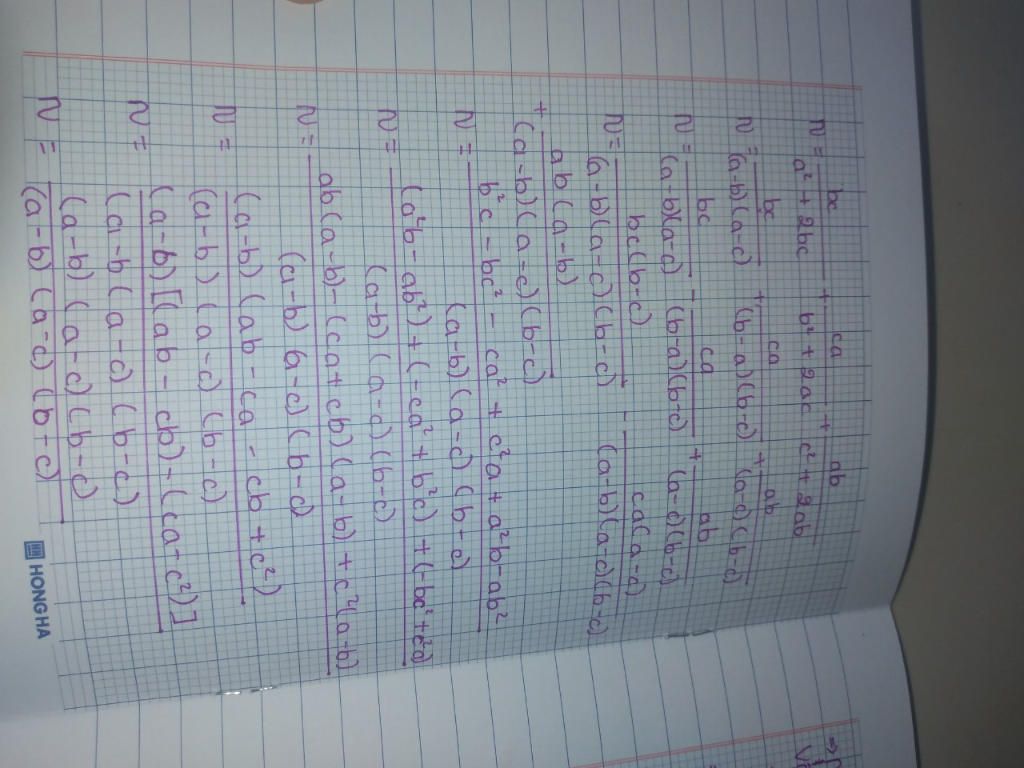 N = bc/(a² + 2bc) + ca/(b² + 2ac) + ab/(c² + 2ab)
N = bc/((a-b)(a-c)) + ca/((b-a)(b-c)) + ab/((a-c)(b-c))
N = bc/((a-b)(a-c)) - ca/((b-a)(b-c)) + ab/((a-c)(b-c))
N = bc(b-c)/((a-b)(a-c)(b-c)) - ca(a-c)/((a-b)(a-c)(b-c))
+ ab(a-b)/((a-b)(a-c)(b-c))
N = (b²c - bc² - ca² + c²a + a²b - ab²)/((a-b)(a-c)(b-c))
N = ((a²b - ab²) + (-ca² + b²c) + (-bc² + c²a))/((a-b)(a-c)(b-c))
N = (ab(a-b) - (ca + cb)(a-b) + c²(a-b))/((a-b)(a-c)(b-c))
N = (a-b)(ab - ca - cb + c²)/((a-b)(a-c)(b-c))
N = (a-b)[(ab - cb) - (ca - c²)]/((a-b)(a-c)(b-c))
N = (a-b)(a-c)(b-c)/((a-b)(a-c)(b-c))
HONG HA